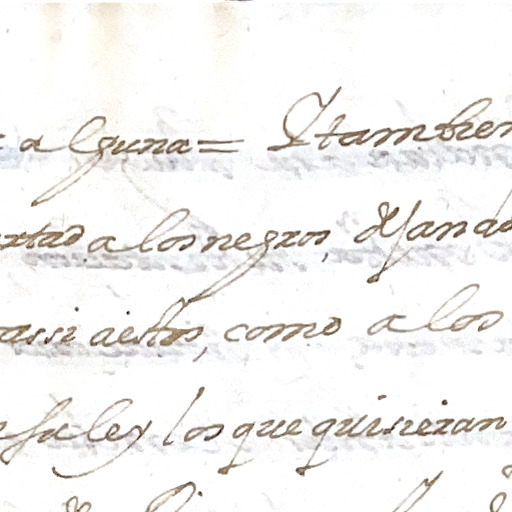 alguna = Ytambien
ertad a los negros, dejando
assi a estos, como a los
su ley los que quisieran